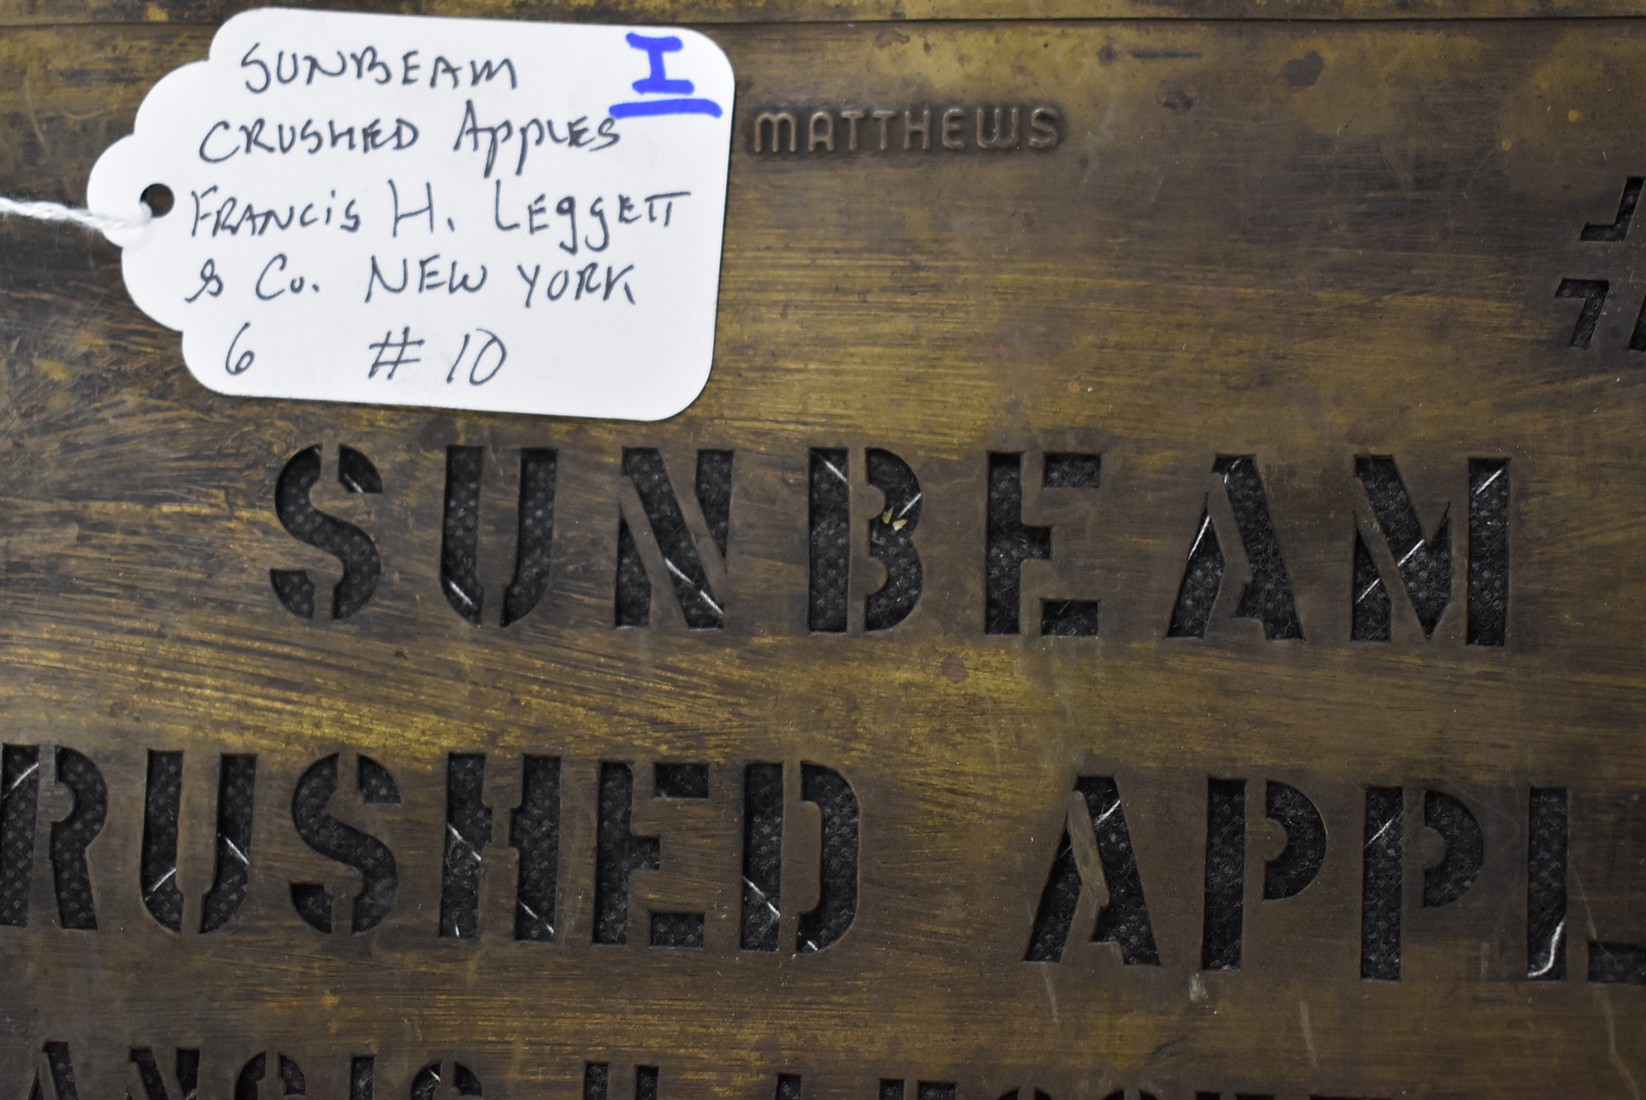 SUNBEAM
I
CRUSHED Apples
FRANCIS H. LEggETT
& Co. NEW YORK
6 #10
MATTHEWS
SUNBEAM
RUSHED APPL
ANCIS H LEGGETT